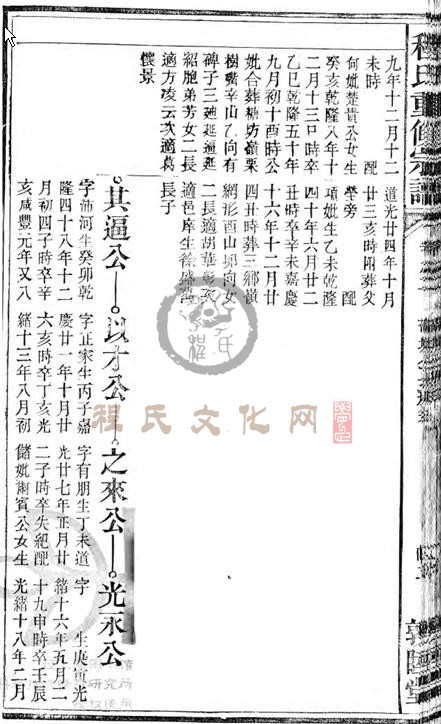 程氏重修宗譜
九年十二月十二
未時　配
何妣楚貴公女生
癸亥乾隆八年十
二月十三口時卒
乙巳乾隆五十年
九月初十酉時公
妣合葬糖坊嶺栗
樹嘴辛山乙向有
碑子三延遜延
紹胞弟芳女二長
適方凌云次適葛
懷景
道光廿四年十月
廿三亥時附葬父
塋旁　配
項妣生乙未乾隆
四十年六月廿二
丑時卒辛未嘉慶
十六年十二月廿
四丑時葬三鄉嶺
網形酉山卯向女
二長適胡華次
適邑庠生徐盛
長子
其逼公—以才公—之來公—光永公
字沛河生癸卯乾
隆四十八年十二
月初四子時卒辛
亥咸豐元年又八
字正家生丙子嘉
慶廿一年十月廿
六亥時卒丁亥光
緒十三年八月初
字有朋生丁未道
光廿七年正月廿
二子時卒失紀配
儲妣爾賓公女生
字　生庚寅光
緒十六年五月二
十九申時卒壬辰
光緒十八年二月
程氏文化网